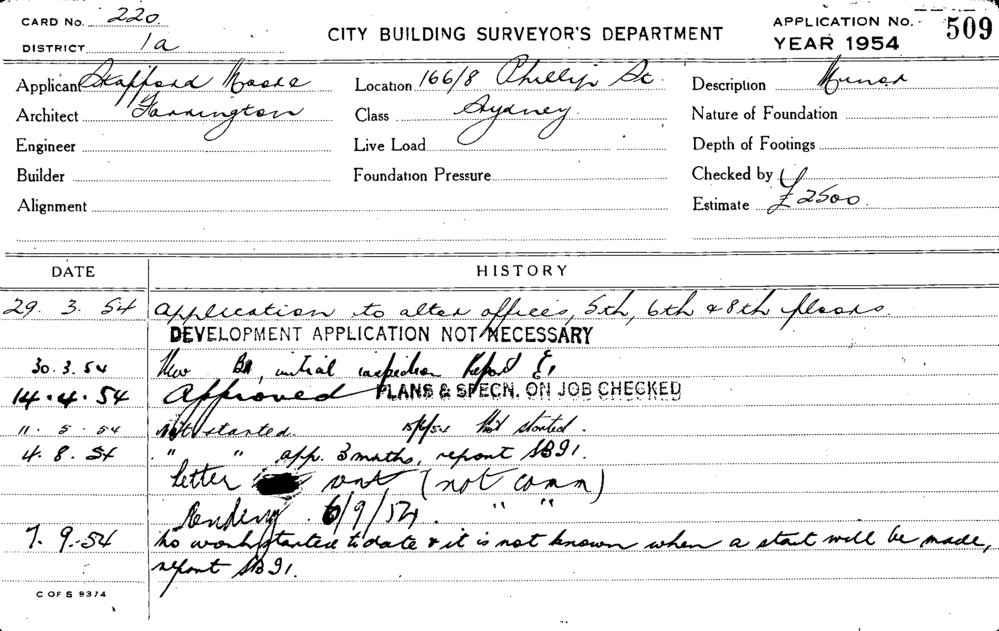 CARD No. 220.
DISTRICT 1a
CITY BUILDING SURVEYOR'S DEPARTMENT
APPLICATION No. 509
YEAR 1954
Applicant Stafford Moore
Location 166/8 Phillip St.
Description Minor
Architect Farrington
Class Sydney
Nature of Foundation
Engineer
Live Load
Depth of Footings
Builder
Foundation Pressure
Checked by
Alignment
Estimate £2500
DATE HISTORY
29. 3. 54 Application to alter offices, 5th, 6th & 8th floors.
DEVELOPMENT APPLICATION NOT NECESSARY
30.3.54 initial inspection Report
14.4.54 Approved PLANS & SPECN. ON JOB CHECKED
11. 5. 54 Not started. Not started.
4. 8. 54 " " app. 3 months, report SB91.
Letter sent (not comm)
Pending 6/9/54. " "
7. 9. 54 No work started to date & it is not known when a start will be made,
report SB91.
C OF S 9374